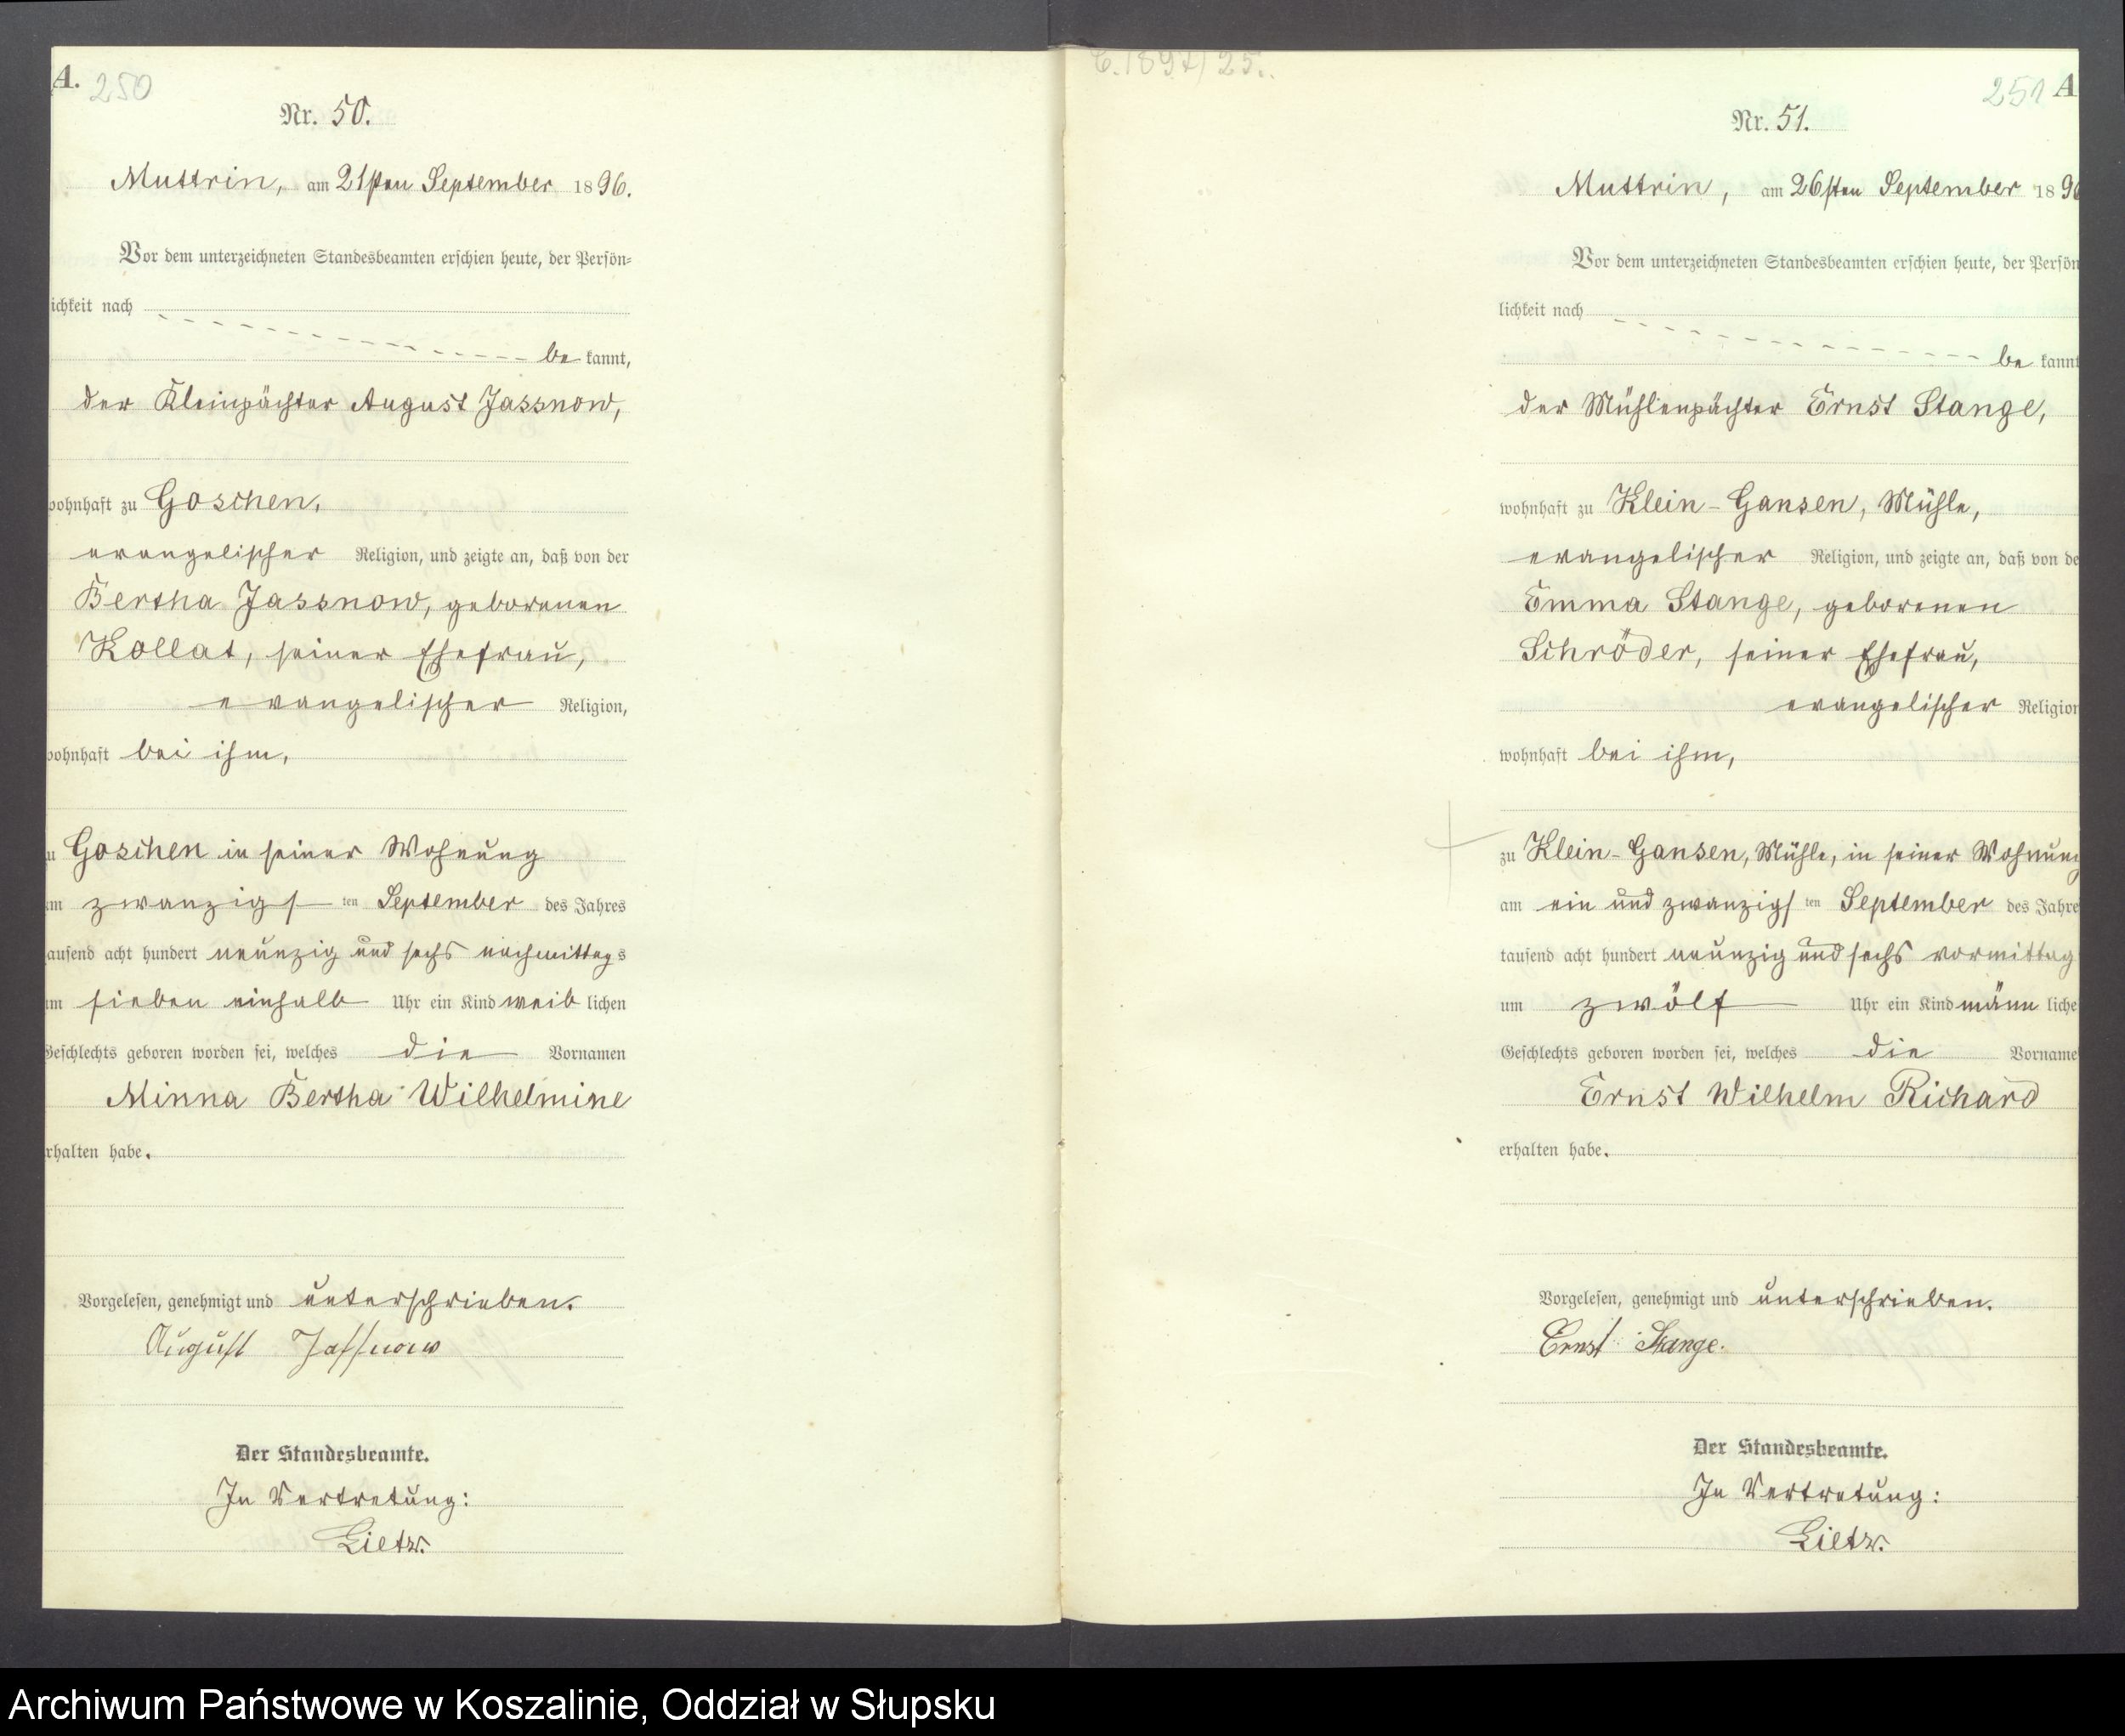 A. 250
Nr. 50.
Muttrin, am 21sten September 1896.
Vor dem unterzeichneten Standesbeamten erschien heute, der Persön=
ichkeit nach
be kannt,
der Kleinpächter August Jassnow,
wohnhaft zu Goschen,
evangelischer Religion, und zeigte an, daß von der
Bertha Jassnow, geborenen
Kollat, seiner Ehefrau,
evangelischer Religion,
wohnhaft bei ihm,
u Goschen in seiner Wohnung
am zwanzigs ten September des Jahres
tausend acht hundert neunzig und sechs nachmittags
um sieben einhalb Uhr ein Kind weib lichen
Geschlechts geboren worden sei, welches die Vornamen
Minna Bertha Wilhelmine
erhalten habe.
Vorgelesen, genehmigt und unterschrieben.
August Jassnow
Der Standesbeamte.
In Vertretung:
Lietz.
251 A
Nr. 51.
Muttrin, am 26sten September 1896
Vor dem unterzeichneten Standesbeamten erschien heute, der Persön
lichkeit nach
be kannt
der Mühlenpächter Ernst Stange,
wohnhaft zu Klein-Gansen, Mühle,
evangelischer Religion, und zeigte an, daß von de
Emma Stange, geborenen
Schröder, seiner Ehefrau,
evangelischer Religion
wohnhaft bei ihm,
zu Klein-Gansen, Mühle, in seiner Wohnung
am ein und zwanzigs ten September des Jahre
tausend acht hundert neunzig und sechs vormittag
um zwölf Uhr ein Kind männ liche
Geschlechts geboren worden sei, welches die Vorname
Ernst Wilhelm Richard
erhalten habe.
Vorgelesen, genehmigt und unterschrieben.
Ernst Stange.
Der Standesbeamte.
In Vertretung:
Lietz.
Archiwum Państwowe w Koszalinie, Oddział w Słupsku